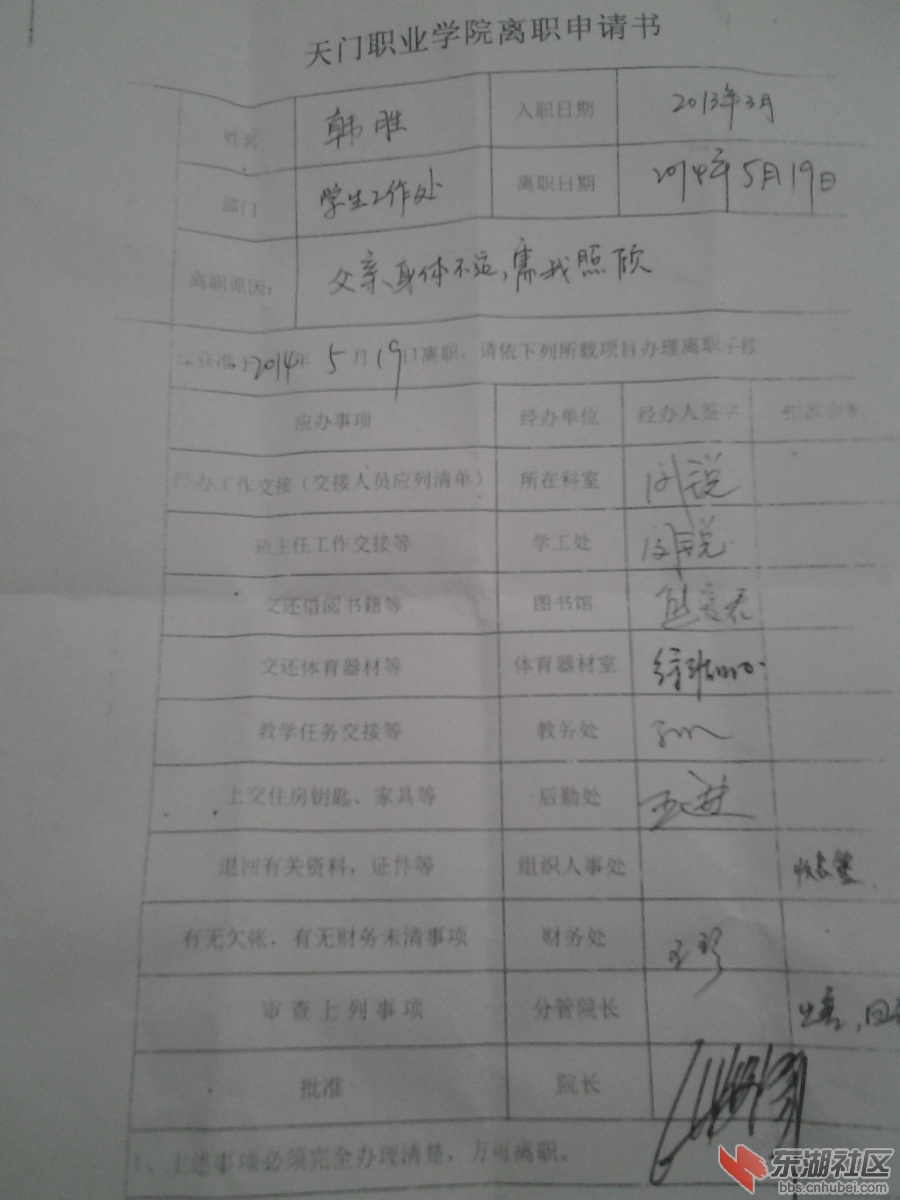 天门职业学院离职申请书
姓名 韩胜 入职日期 2013年3月
部门 学生工作处 离职日期 2014年5月19日
离职原因： 父亲身体不适，需我照顾
获准于2014年5月19日离职，请依下列所载项目办理离职手续
应办事项 经办单位 经办人签字
经办工作交接（交接人员应列清单） 所在科室
班主任工作交接等 学工处
交还借阅书籍等 图书馆
交还体育器材等 体育器材室
教学任务交接等 教务处
上交住房钥匙、家具等 后勤处
退回有关资料，证件等 组织人事处
有无欠帐，有无财务未清事项 财务处 王珍
审查上列事项 分管院长
批准 院长
1、上述事项必须完全办理清楚，方可离职。
东湖社区
bbs.cnhubei.com